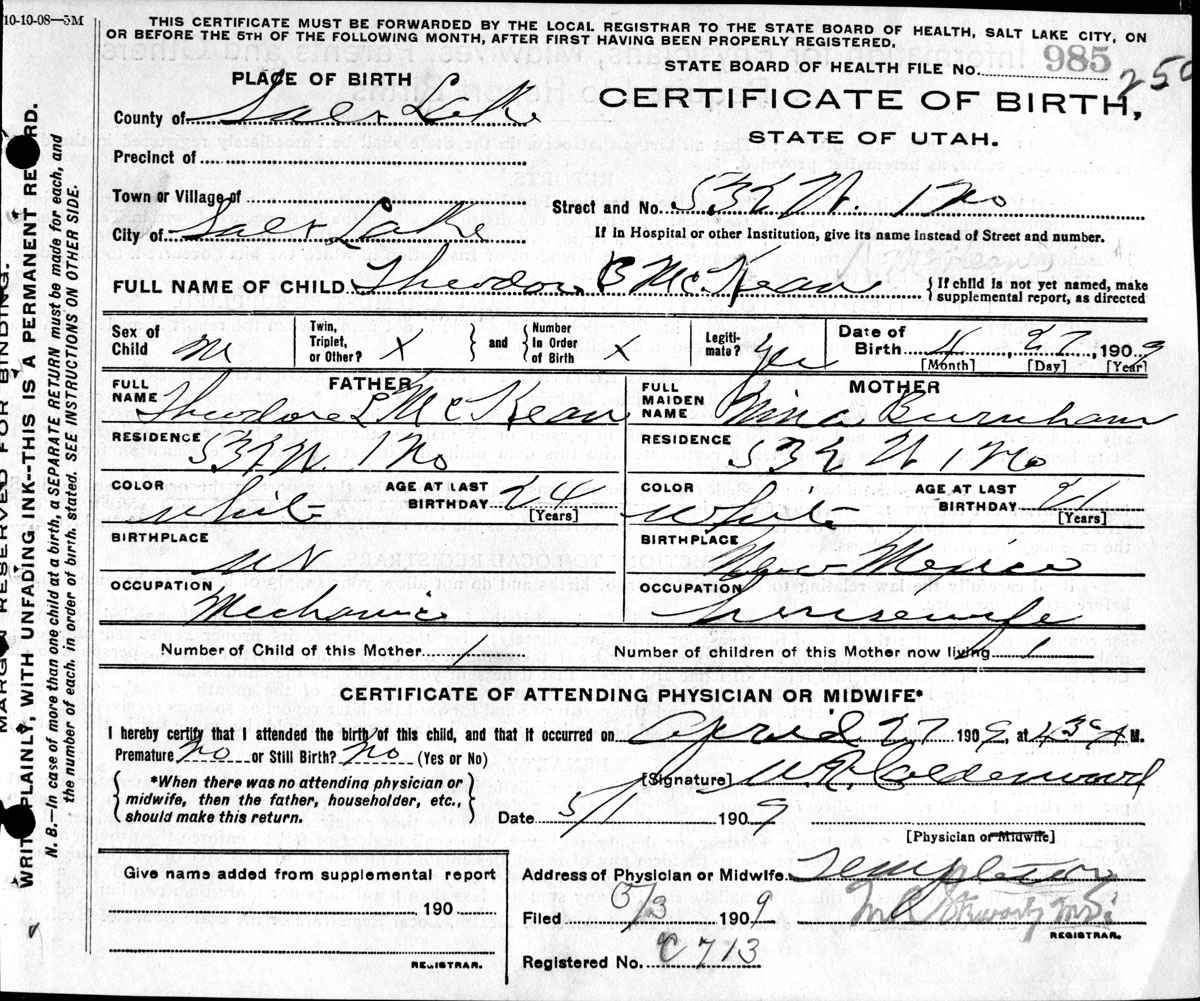 10-10-08—5M
THIS CERTIFICATE MUST BE FORWARDED BY THE LOCAL REGISTRAR TO THE STATE BOARD OF HEALTH, SALT LAKE CITY, ON
OR BEFORE THE 5TH OF THE FOLLOWING MONTH, AFTER FIRST HAVING BEEN PROPERLY REGISTERED.
STATE BOARD OF HEALTH FILE No. 985
250
CERTIFICATE OF BIRTH,
STATE OF UTAH.
PLACE OF BIRTH
County of Salt Lake
Precinct of
Town or Village of
City of Salt Lake
Street and No. 532 W. 1 No
If in Hospital or other Institution, give its name instead of Street and number.
FULL NAME OF CHILD Theodore B McKean
{ If child is not yet named, make
supplemental report, as directed
Sex of
Child m
Twin,
Triplet,
or Other? X
} and {
Number
in Order
of Birth x
Legiti-
mate? Yes
Date of
Birth 4, 27, 1909
[Month] [Day] [Year]
FATHER
FULL
NAME Theodore L McKean
RESIDENCE
532 W. 1 No
COLOR White
AGE AT LAST
BIRTHDAY 24
[Years]
BIRTHPLACE
OCCUPATION
Mechanic
MOTHER
FULL
MAIDEN
NAME Nina Burnham
RESIDENCE
532 W 1 No
COLOR White
AGE AT LAST
BIRTHDAY 21
[Years]
BIRTHPLACE
New Mexico
OCCUPATION
housewife
Number of Child of this Mother 1
Number of children of this Mother now living 1
CERTIFICATE OF ATTENDING PHYSICIAN OR MIDWIFE*
I hereby certify that I attended the birth of this child, and that it occurred on April 27 1909, at 4 30 A M.
Premature? no or Still Birth? no (Yes or No)
{ *When there was no attending physician or
midwife, then the father, householder, etc.,
should make this return. }
[Signature]
Date 5/1 1909
[Physician or Midwife]
Address of Physician or Midwife. Templeton
Filed 5/3 1909
REGISTRAR.
Registered No. C 713
Give name added from supplemental report
190
REGISTRAR.
MARGIN RESERVED FOR BINDING.
WRITE PLAINLY, WITH UNFADING INK--THIS IS A PERMANENT RECORD.
N. B.—In case of more than one child at a birth, a SEPARATE RETURN must be made for each, and
the number of each, in order of birth, stated. SEE INSTRUCTIONS ON OTHER SIDE.